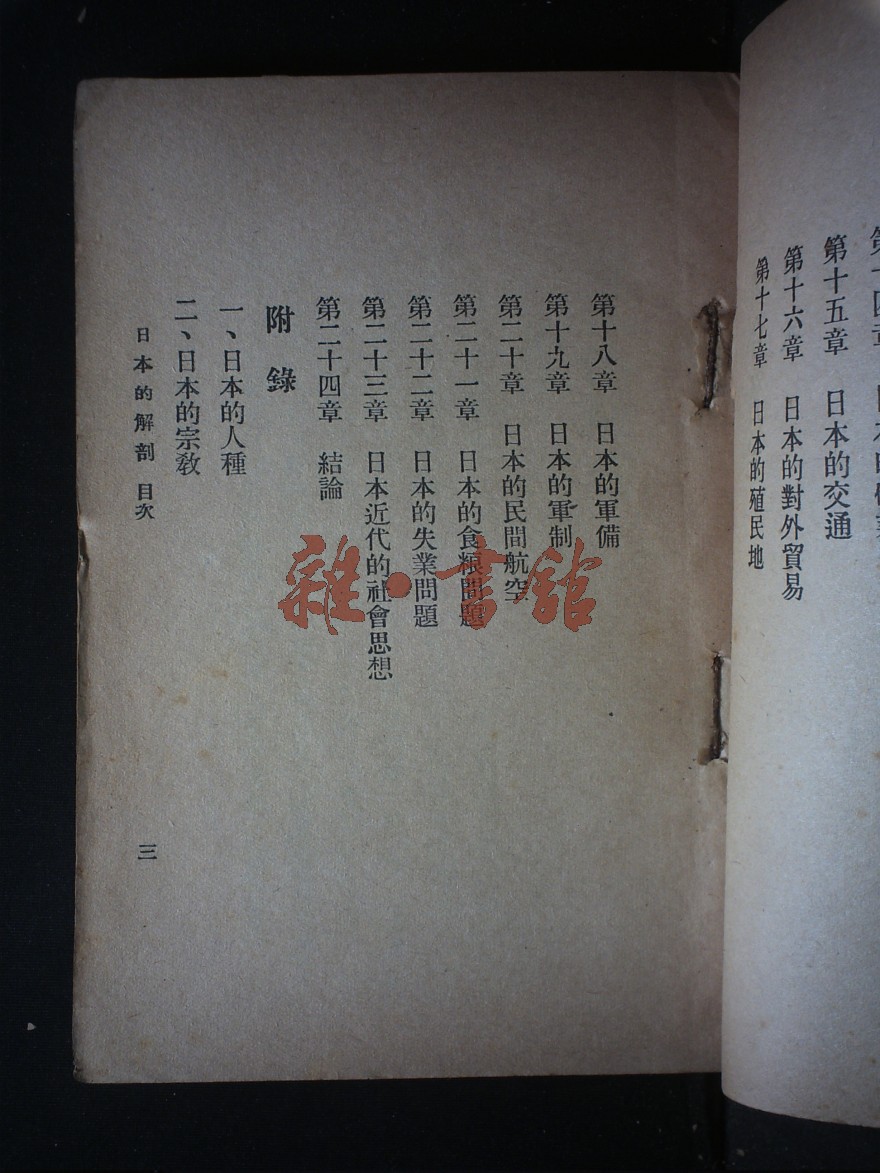 第十五章　日本的交通
第十六章　日本的對外貿易
第十七章　日本的殖民地
第十八章　日本的軍備
第十九章　日本的軍制
第二十章　日本的民間航空
第二十一章　日本的食粮問題
第二十二章　日本的失業問題
第二十三章　日本近代的社會思想
第二十四章　結論
附錄
一、日本的人種
二、日本的宗教
日本的解剖　目次
三
雜·書館